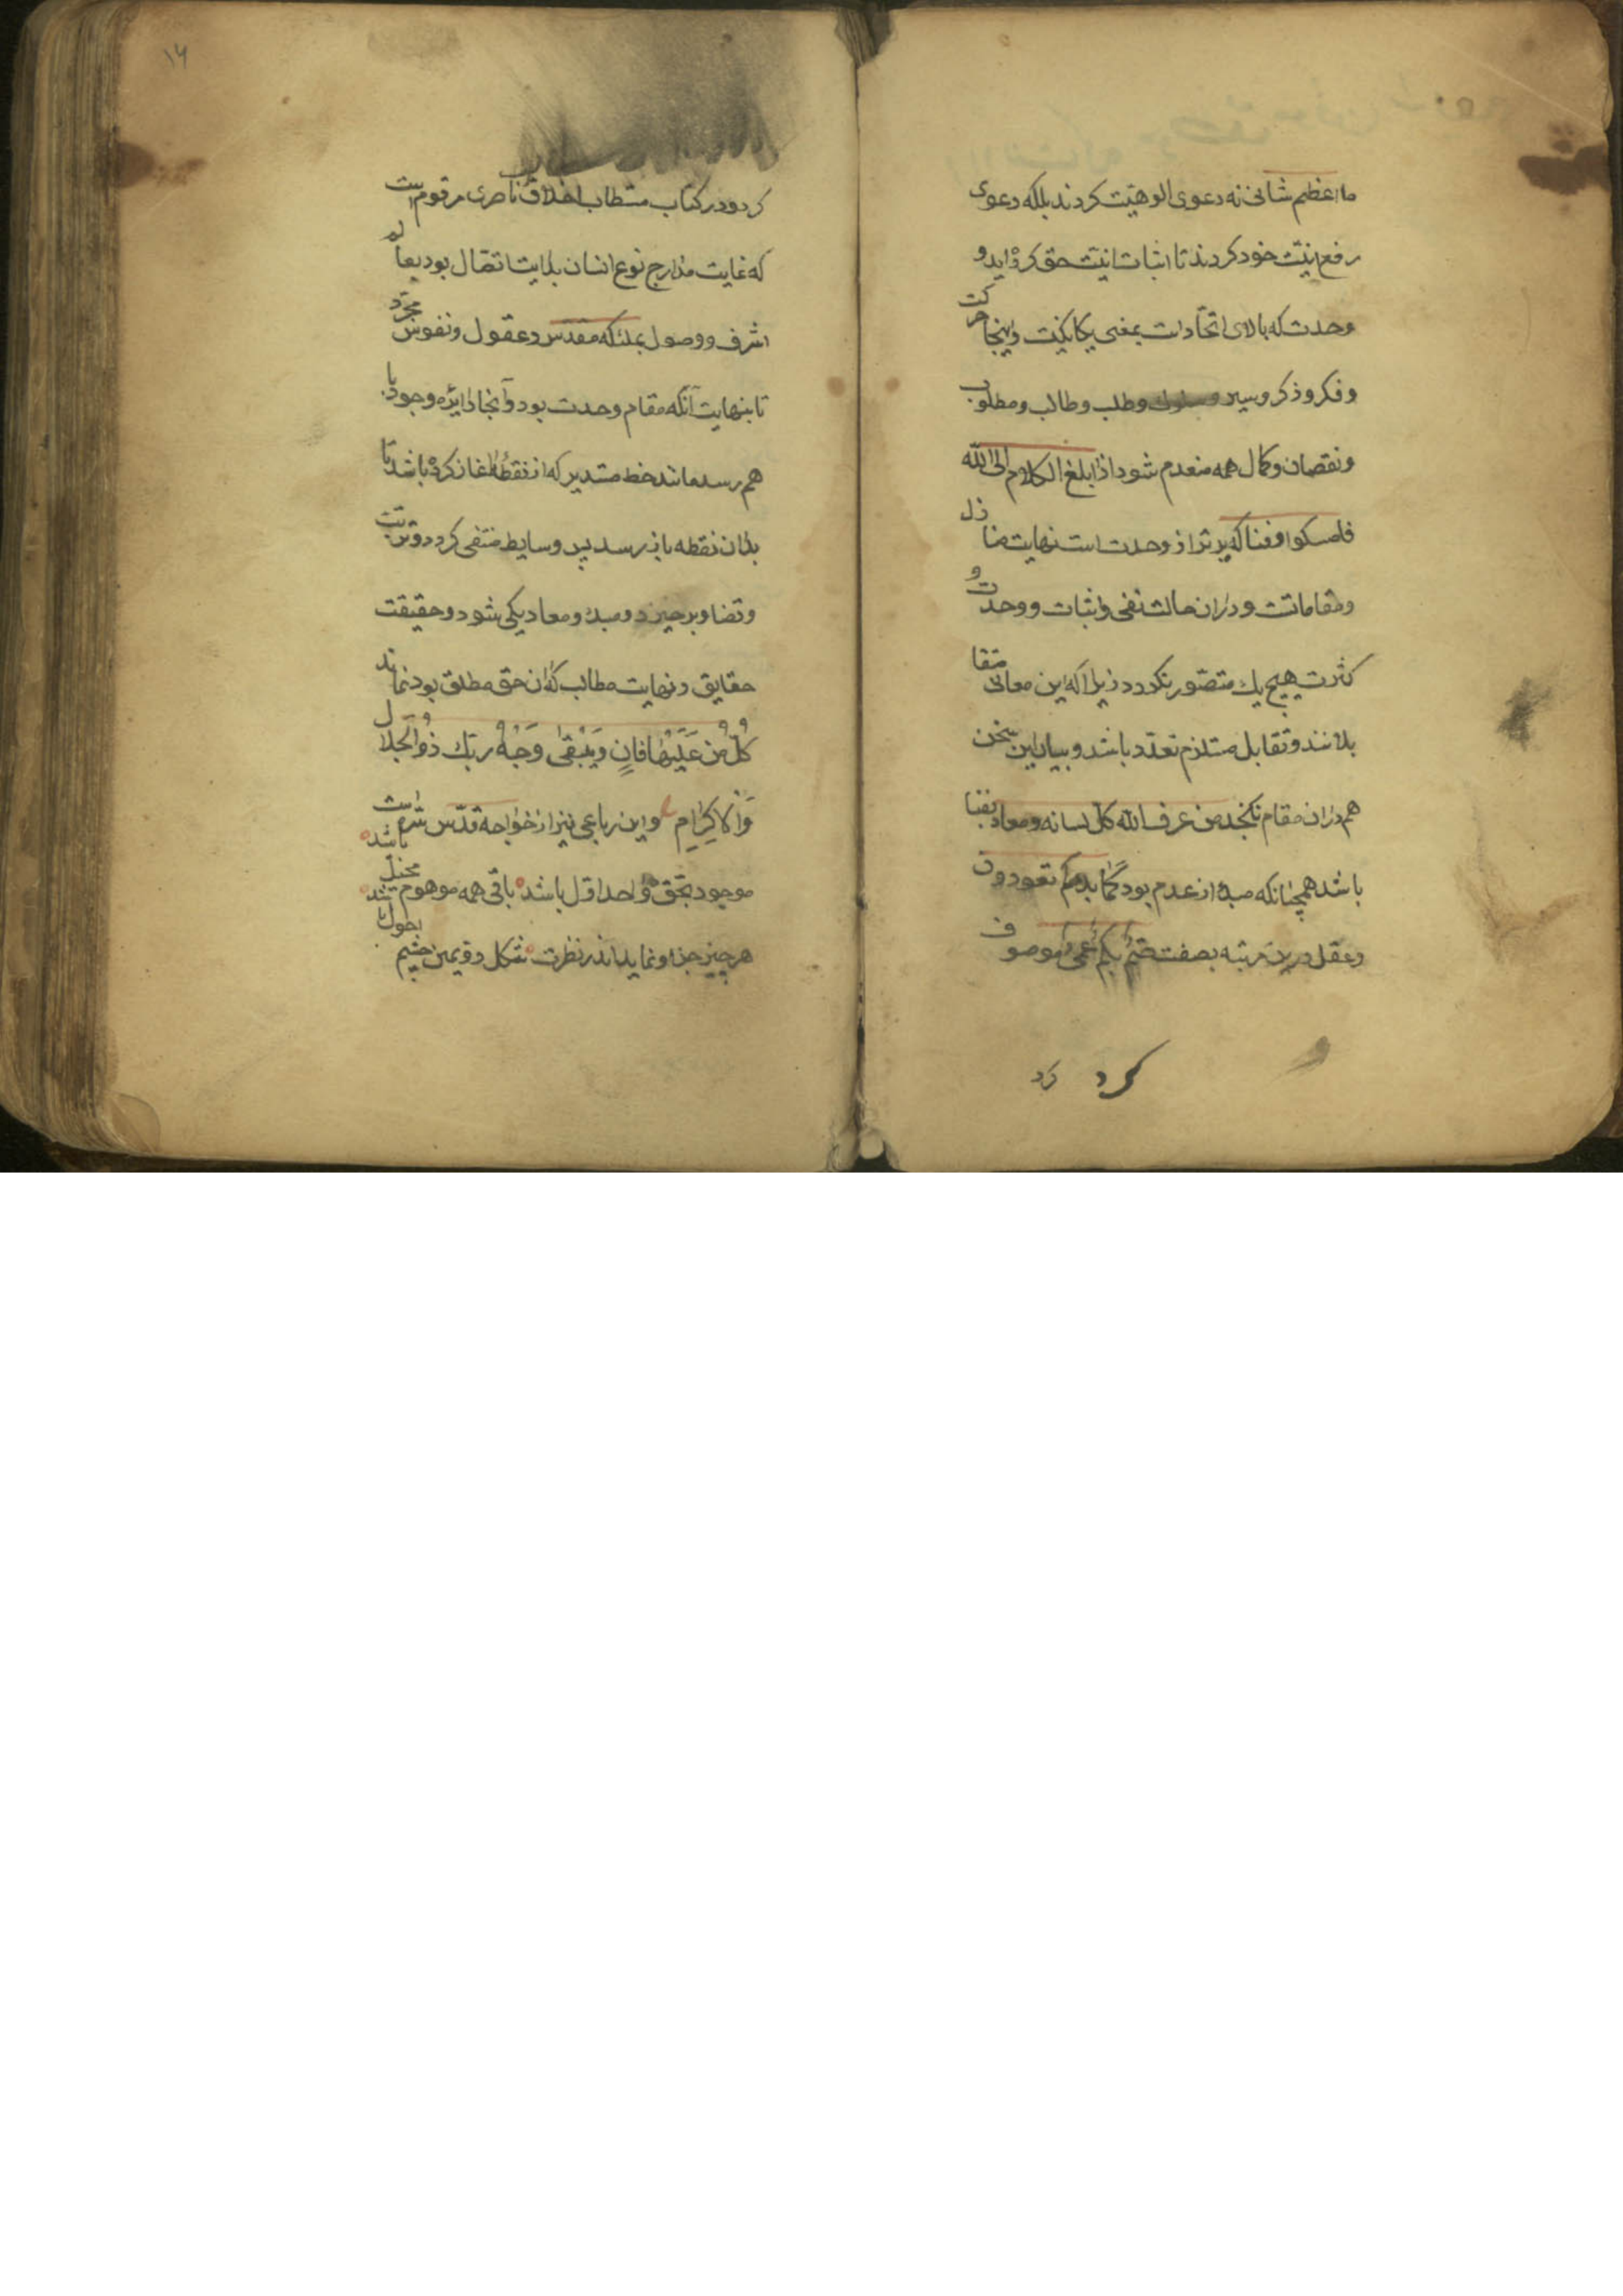 ما اعظم شانی نه دعوی الوهیت کردند بلکه دعوی
رفع انیت خود کردند تا اثبات انیت حق کرده اید و
وحدت که بالای اتحادست بمعنی یکانکیت و اینجا حرکت
و فکر و ذکر و سیر و سلوک و طلب و طالب و مطلوب
و نقصان و کمال همه منعدم شود اذا بلغ الکلام الی الله
فامسکوا و فنا که برتر از وحدت است نهایت منازل
و مقاماتت و در ان حالت نفی و اثبات و وحدت و
کثرت هیچ یک متصور نکردد زیرا که این معانی متقا
بلانند و تقابل مستلزم تعدد باشد و بیان این سخن
هم در ان مقام نکنجد من عرف الله کل لسانه و معاد بفنا
باشد همچنانکه مبدا از عدم بود کما بدءکم تعودون
و عقل درین مرتبه بصفت صم بکم عمی موصوف
کرد کرد
۱۴
کردد در کتاب مستطاب اخلاق ناصری مرقوم است
که غایت مدارج نوع انسان بدایت اتصال بود بعالم
اشرف و وصول بملئکه مقدس و عقول و نفوس مجرد
تا بنهایت آنکه مقام وحدت بود و آنجا دایره وجود با
هم رسد مانند خط مستدیر که از نقطهٔ اغاز کرده باشد تا
بدان نقطه باز رسد پس وسایط منتفی کردد و ترتیب
و تضاد برخیزد و مبدء و معاد یکی شود و حقیقت
حقایق و نهایت مطالب که ان حق مطلق بود نماند
كُلُّ مَن عَلَيْهَا فَانٍ وَيَبْقىٰ وَجْهُ ربّك ذُو الْجَلَال
وَالْاِكْرَامِ و این رباعی نیز از خواجه قدّس سره است
موجود بحق واحد اول باشد باقی همه موهوم و مخیل باشد
هر چیز جز او نماید اندر نظرت شکل دویمین چشم احول باشد